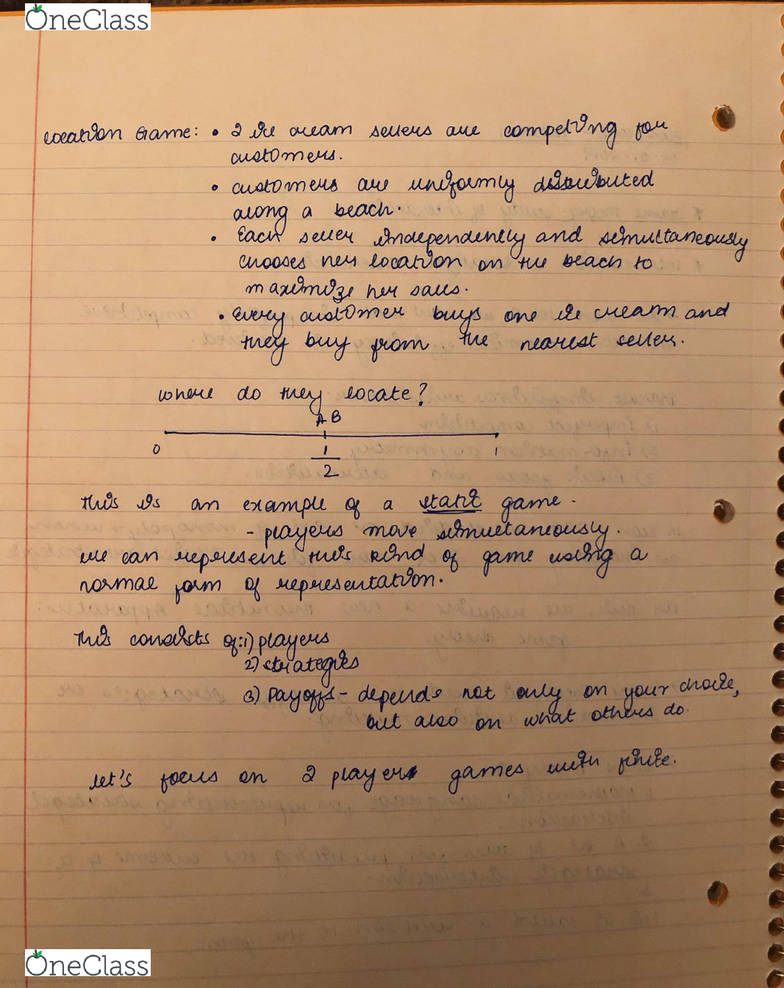 OneClass
Location Game: • 2 ice cream sellers are competing for
customers.
• customers are uniformly distributed
along a beach.
• Each seller independently and simultaneously
chooses her location on the beach to
maximize her sales.
• Every customer buys one ice cream and
they buy from the nearest seller.
where do they locate?
A B
0 1/2 1
This is an example of a static game.
- players move simultaneously.
we can represent this kind of game using a
normal form of representation.
This consists of: 1) players
2) strategies
3) Payoffs - depends not only on your choice,
but also on what others do.
let's focus on 2 player games with finite.
OneClass